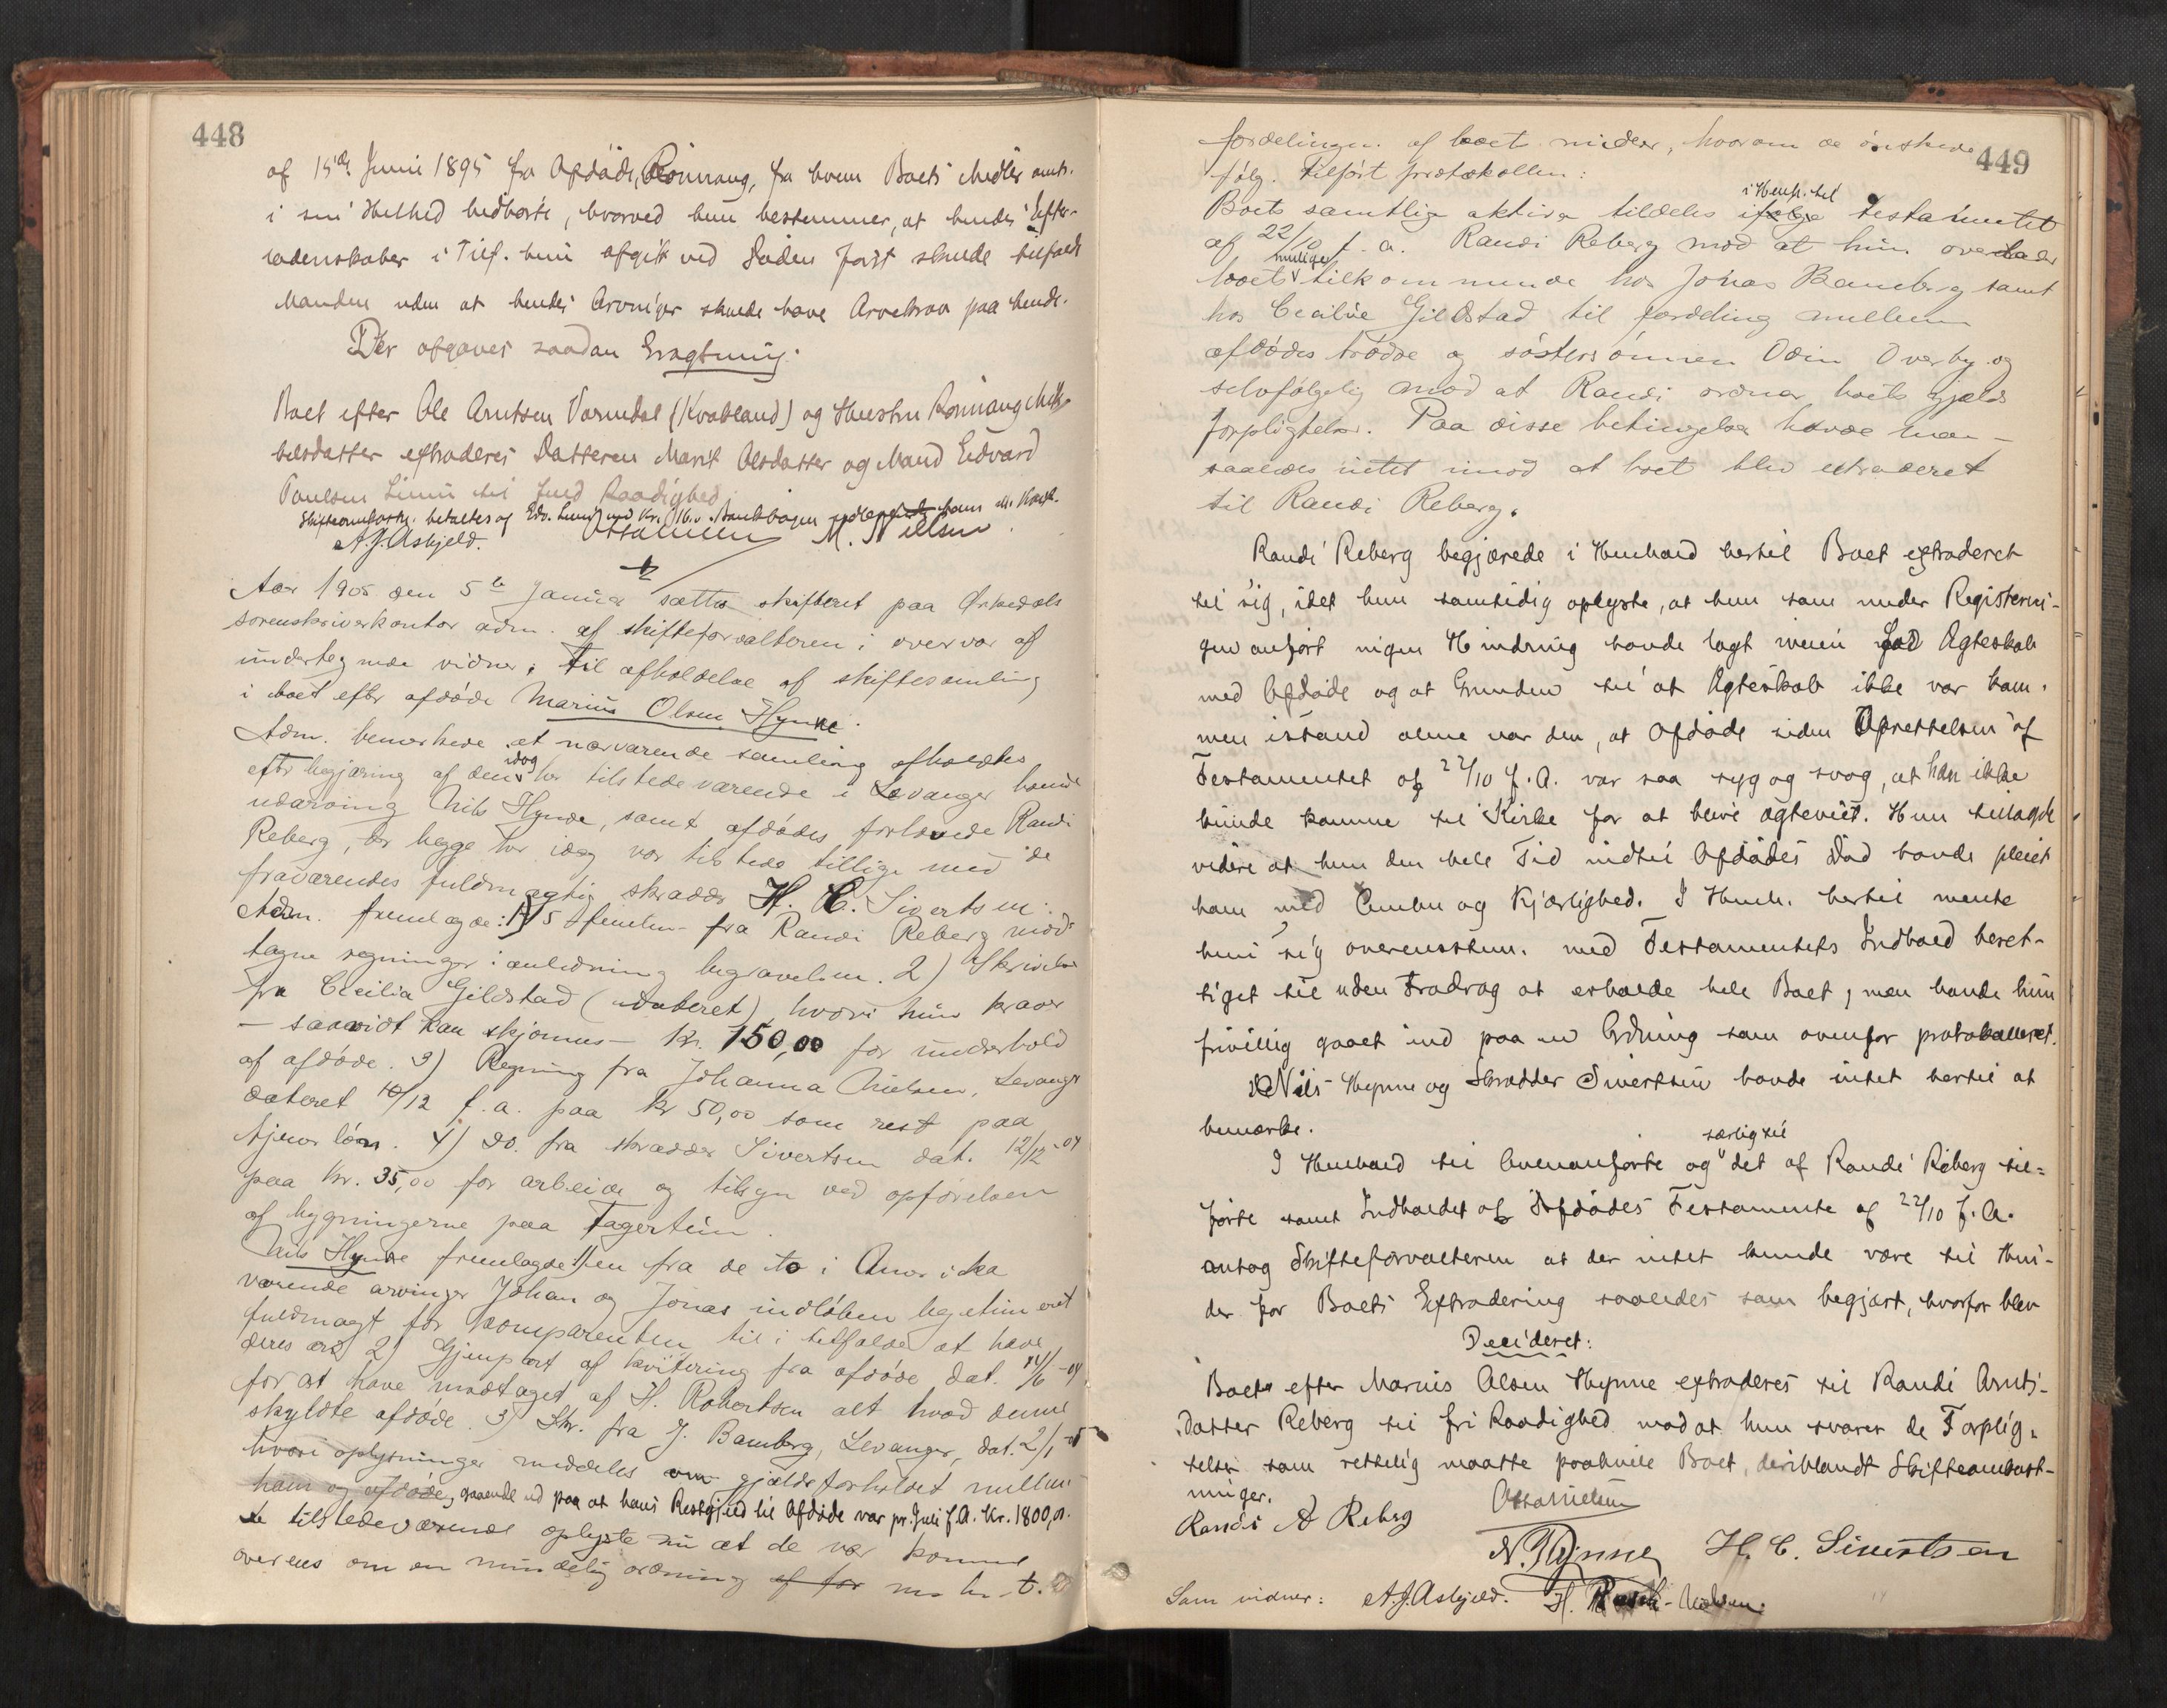 448
af 15de Juni 1895 fra Afdøde, Rønnaug, fra hvem Boets Midler
i sin Helhed hidhørte, hvorved hun bestemmer, at hendes Efter-
ladenskaber i Tilf. hun afgik ved Døden først skulde tilfalde
Manden uden at hendes Arvinger skulde have Arvekrav paa hende.
Der afgaves saadan
Boet efter Ole Arntsen Vormdal (Kvabland) og Hustru Rønnaug
datter extraderes Datteren Marit Olsdatter og Mand Edvard
Paulsen til fuld Raadighed.
betaltes af Edv. med Kr. 16. Bankbogen
A. J. Askjeld. M. Nillsen
Aar 1905 den 5te Januar sattes skifteret paa Orkedals
sorenskriverkontor adm. af skifteforvalteren i overvær af
undertegnede vidner, til afholdelse af skiftesamling
i boet efter afdøde Marius Olsen Hynne.
Adm. bemerkede at nærværende samling afholdtes
efter begjæring af den idag her tilstedeværende i Levanger boende
udarving Nils Hynne, samt afdødes forlovede Randi
Reberg, der begge her idag var tilstede tillige med de
fraværendes fuldmægtig skrædder H. C. Sivertsen.
Adm. fremlagde: 1) 5 fra Randi Reberg mod-
tagne regninger i anledning begravelsen. 2) Skrivelse
fra Cecilia Gildstad (udateret) hvori hun kræver
— saavidt kan skjønnes — kr. 150,00 for underhold
af afdøde. 3) Regning fra Johanna Nielsen, Levanger
dateret 10/12 f. a. paa kr 50,00 som rest paa
tjenerløn. 4) Do. fra skrædder Sivertsen dat. 12/12-04
paa kr. 35,00 for arbeide og tilsyn ved opførelsen
af bygningerne paa Fagertun.
Nils Hynne fremlagde 1) en fra de to i Amerika
værende arvinger Johan og Jonas indløben legitimeret
fuldmagt for komparenten til i tilfælde at hæve
deres arv 2) Gjenpart af kvittering fra afdøde dat. 14/6-04
for at have modtaget af H. Robertsen alt hvad denne
skyldte afdøde. 3) Skr. fra J. Bamberg, Levanger, dat. 2/1-05
hvori oplysninger meddeles om gjældsforholdet mellem
ham og afdøde, gaaende ud paa at hans Restgjeld til Afdøde var pr. Juli f. A. Kr. 1800,00.
De tilstedeværende oplyste nu at de var kommet
overens om en mindelig ordning af for
449
fordelingen af boets midler, hvorom de ønskede
følg. tilført protokollen:
i Henh. til
Boets samtlige aktiva tildeles ifølge testamentet
af 22/10 f. a. Randi Reberg mod at hun overlader
mulige
boets tilkommende hos Jonas Bamberg samt
hos Cecilie Gildstad til fordeling mellem
afdødes brødre og søstersønnen Odin Overby og
selvfølgelig mod at Randi ordner boets gjælds
forpligtelser. Paa disse betingelser havde man —
saaledes intet imod at boet blev extraderet
til Randi Reberg.
Randi Reberg begjærede i Henhold hertil Boet extraderet
til sig, idet hun samtidig oplyste, at hun som under Registerin-
gen anført ingen Hindring havde lagt iveien for Ægteskab
med Afdøde og at Grunden til at Ægteskab ikke var kom-
men istand alene var den, at Afdøde siden Oprettelsen af
Testamentet af 22/10 f. A. var saa syg og svag, at han ikke
kunde komme til Kirke for at blive ægteviet. Hun tillagde
videre at hun den hele Tid indtil Afdødes Død havde pleiet
ham med Omhu og Kjærlighed. I Henh. hertil mente
hun sig overensstem. med Testamentets Indhold beret-
tiget til uden Fradrag at erholde hele Boet, men havde hun
frivillig gaaet ind paa en Ordning som ovenfor protokolleret.
Nils Hynne og Skrædder Sivertsen havde intet hertil at
bemærke.
særlig til
I Henhold til Ovenanførte og det af Randi Reberg til-
førte samt Indholdet af Afdødes Testamente af 22/10 f. A.
antog Skifteforvalteren at der intet kunde være til Hin-
der for Boets Extradering saaledes som begjært, hvorfor blev
Decideret:
Boet efter Marius Olsen Hynne extraderes til Randi Arnts-
datter Reberg til fri Raadighed mod at hun svarer de Forplig-
telser som rettelig maatte paahvile Boet, deriblandt Skifteomkost-
ninger.
Randi A Reberg
N. Hynne H. C. Sivertsen
Som vidner: A. J. Askjeld. H.